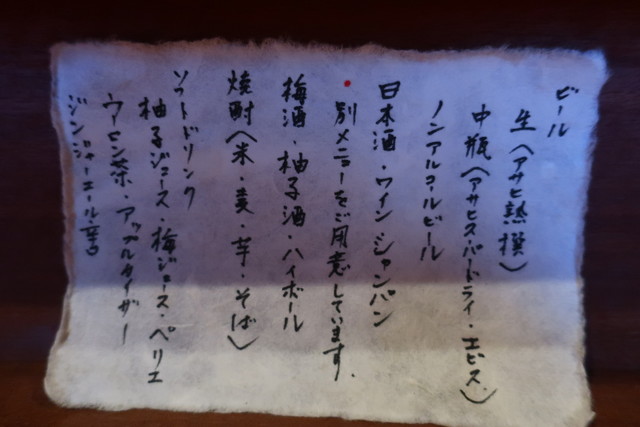 ビール
生（アサヒ熟撰）
中瓶（アサヒスーパードライ・エビス）
ノンアルコールビール
日本酒・ワイン・シャンパン
別メニューをご用意しています。
梅酒・柚子酒・ハイボール
焼酎（米・麦・芋・そば）
ソフトドリンク
柚子ジュース・梅ジュース・ペリエ
ウーロン茶・アップルタイザー
ジンジャーエール・辛口